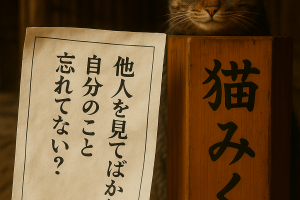 他人を見てばかり
自分のこと
忘れてない？
猫みく